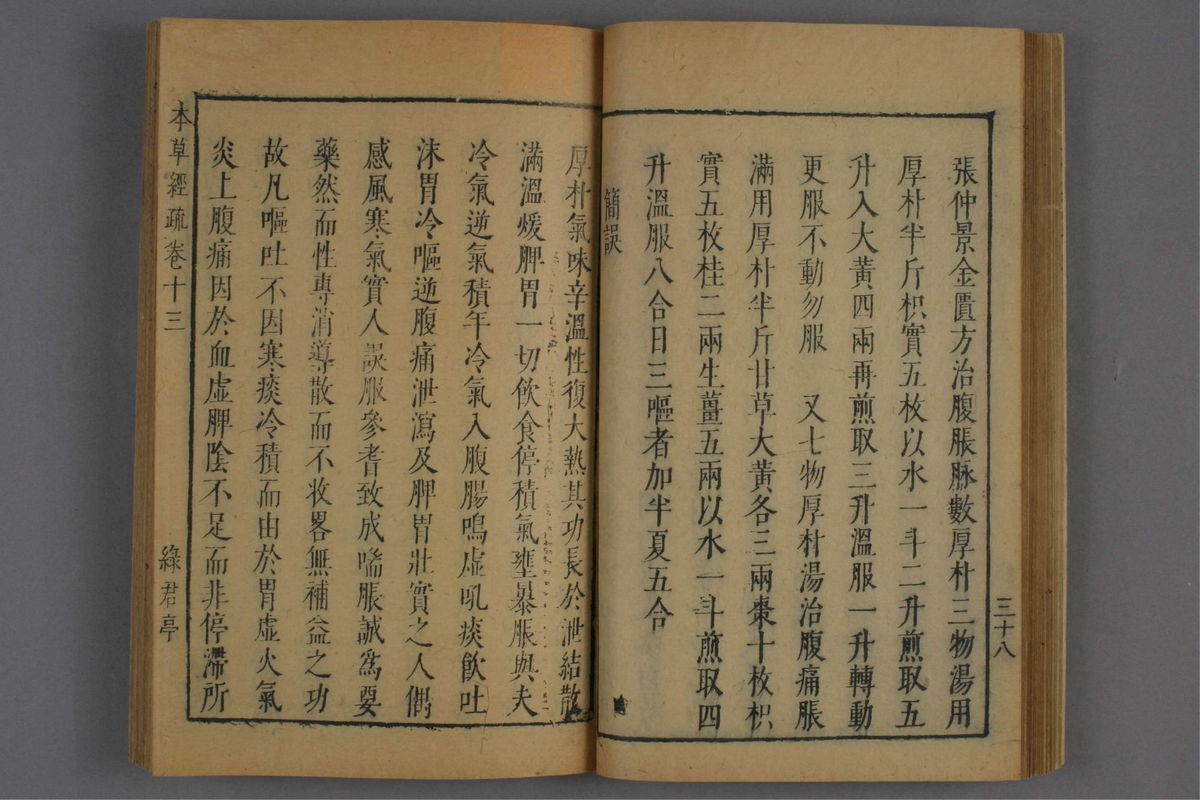 三十八
張仲景金匱方治腹脹脉數厚朴三物湯用
厚朴半斤枳實五枚以水一斗二升煎取五
升入大黃四兩再煎取三升溫服一升轉動
更服不動勿服　又七物厚朴湯治腹痛脹
滿用厚朴半斤甘草大黃各三兩棗十枚枳
實五枚桂二兩生薑五兩以水一斗煎取四
升溫服八合日三嘔者加半夏五合
簡誤
厚朴氣味辛溫性復大熱其功長於泄結散
滿溫煖脾胃一切飲食停積氣壅暴脹與夫
冷氣逆氣積年冷氣入腹腸鳴虛吼痰飲吐
沫胃冷嘔逆腹痛泄瀉及脾胃壯實之人偶
感風寒氣實人誤服參耆致成喘脹誠爲要
藥然而性專消導散而不收畧無補益之功
故凡嘔吐不因寒痰冷積而由於胃虛火氣
炎上腹痛因於血虛脾陰不足而非停滯所
本草經疏卷十三
綠君亭